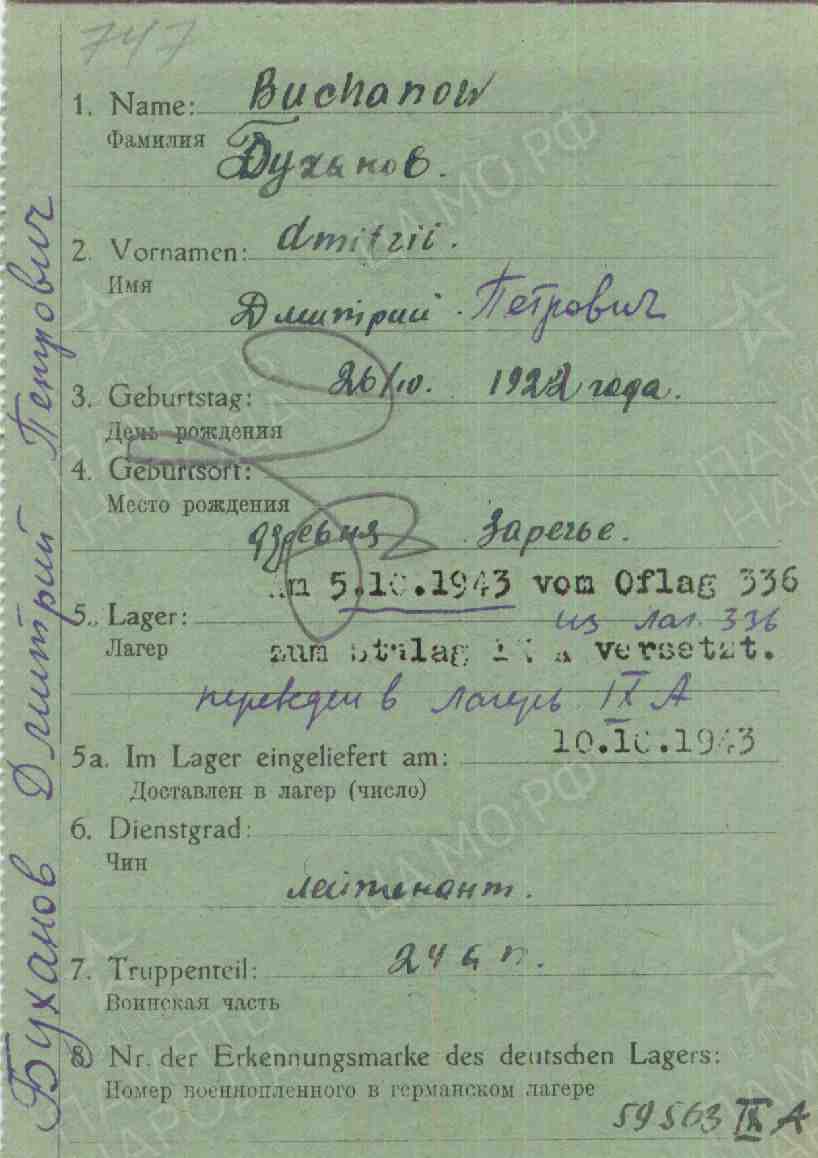 747
1. Name: Buchanow
Фамилия Буханов.
2. Vornamen: dmitrii.
Имя
Дмитрий. Петрович
3. Geburtstag: 26/10. 1922 года.
День рождения
4. Geburtsort:
Место рождения
деревня Заречье.
5.10.1943 vom Oflag 336
5. Lager: из лаг. 336
Лагер zum Stalag IX A versetzt.
переведен в лагерь IX А
10.10.1943
5a. Im Lager eingeliefert am:
Доставлен в лагер (число)
6. Dienstgrad:
Чин
лейтенант.
7. Truppenteil: 24 а п.
Воинская часть
8) Nr. der Erkennungsmarke des deutschen Lagers:
Номер военнопленного в германском лагере
59563 IX A
Буханов Дмитрий Петрович
ЦАМО.РФ
ЦАМО.РФ